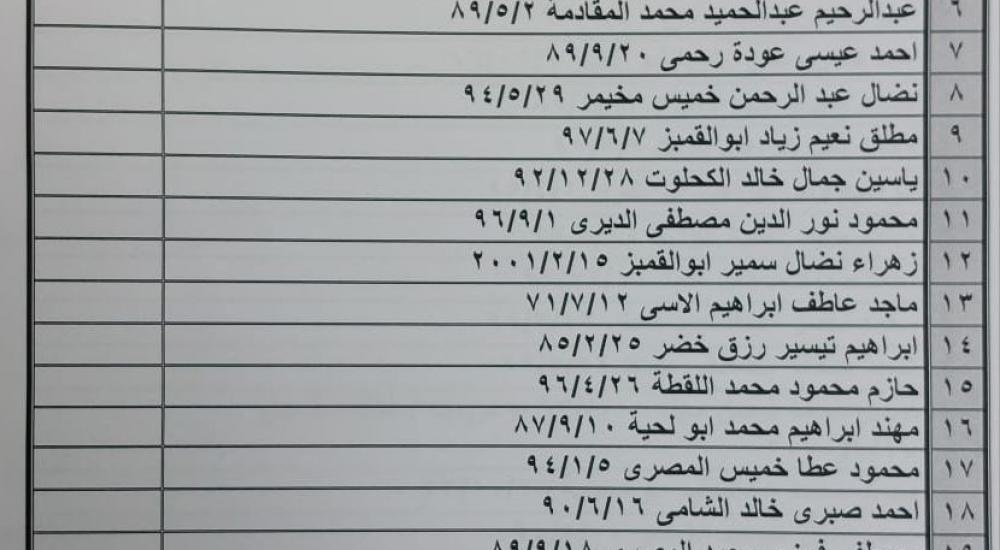 ٦ عبدالرحيم عبدالحميد محمد المقادمة ٨٩/٥/٢
٧ احمد عيسى عودة رحمى ٨٩/٩/٢٠
٨ نضال عبد الرحمن خميس مخيمر ٩٤/٥/٢٩
٩ مطلق نعيم زياد ابوالقمبز ٩٧/٦/٧
١٠ ياسين جمال خالد الكحلوت ٩٢/١٢/٢٨
١١ محمود نور الدين مصطفى الديرى ٩٦/٩/١
١٢ زهراء نضال سمير ابوالقمبز ٢٠٠١/٢/١٥
١٣ ماجد عاطف ابراهيم الاسى ٧١/٧/١٢
١٤ ابراهيم تيسير رزق خضر ٨٥/٢/٢٥
١٥ حازم محمود محمد اللقطة ٩٦/٤/٢٦
١٦ مهند ابراهيم محمد ابو لحية ٨٧/٩/١٠
١٧ محمود عطا خميس المصرى ٩٤/١/٥
١٨ احمد صبرى خالد الشامى ٩٠/٦/١٦
١٩ ٨٩/٩/١٨